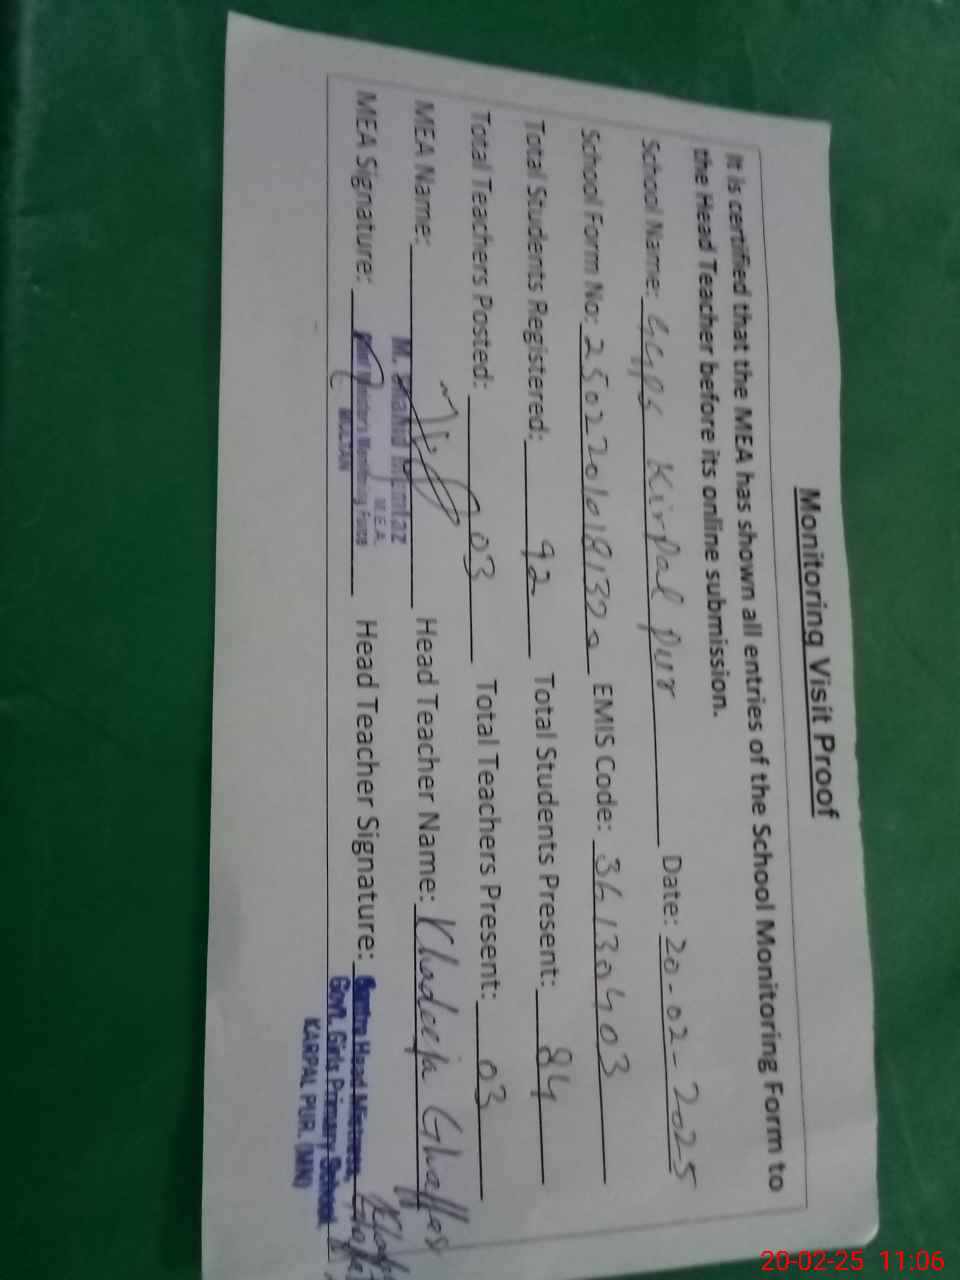 Monitoring Visit Proof
It is certified that the MEA has shown all entries of the School Monitoring Form to
the Head Teacher before its online submission.
School Name: GGPS Kirpal pur Date: 20-02-2025
School Form No: EMIS Code: 36130403
Total Students Registered: 92 Total Students Present: 84
Total Teachers Posted: 03 Total Teachers Present: 03
MEA Name: M. Mumtaz Head Teacher Name: Khadeeja Ghaffar
M.E.A.
MEA Signature: Monitoring Force Head Teacher Signature: Head Mistress,
MULTAN
Govt. Girls Primary School,
KARPAL PUR. (MN)
20-02-25 11:06